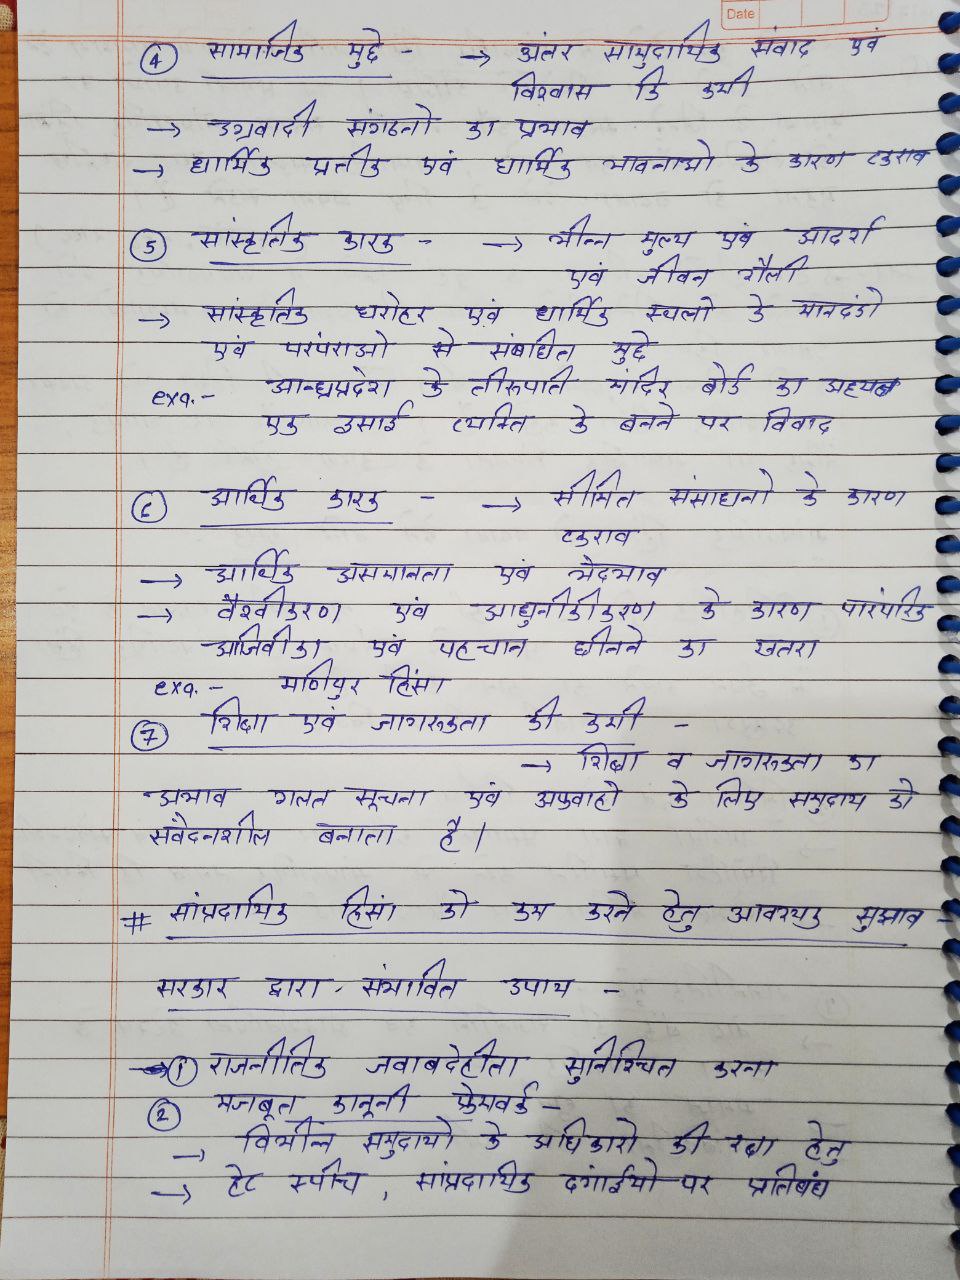 Date
④ सामाजिक मुद्दे - → अंतर सामुदायिक संवाद एवं
विश्वास कि कमी
→ उग्रवादी संगठनो का प्रभाव
→ धार्मिक प्रतीक एवं धार्मिक भावनाओ के कारण टकराव
⑤ सांस्कृतिक कारक - → भीन्न मुल्य एवं आदर्श
एवं जीवन शैली
→ सांस्कृतिक धरोहर एवं धार्मिक स्थलो के मानदंडो
एवं परंपराओ से संबंधित मुद्दे
exa.- आन्ध्रप्रदेश के तीरूपति मंदिर बोर्ड का अध्यक्ष
एक इसाई व्यक्ति के बनने पर विवाद
⑥ आर्थिक कारक - → सीमित संसाधनो के कारण
टकराव
→ आर्थिक असमानता एवं भेदभाव
→ वैश्वीकरण एवं आधुनीकीकरण के कारण पारंपरिक
आजिवीका एवं पहचान छीनने का खतरा
exa.- मणिपुर हिंसा
⑦ शिक्षा एवं जागरूकता की कमी -
→ शिक्षा व जागरूकता का
अभाव गलत सूचना एवं अफवाहो के लिए समुदाय को
संवेदनशील बनाता है।
# सांप्रदायिक हिसां को कम करने हेतु आवश्यक सुझाव -
सरकार द्वारा संभावित उपाय -
① राजनीतिक जवाबदेहीता सुनिश्चित करना
② मजबूत कानूनी फ्रेमवर्क -
→ विभीन्न समुदायो के अधिकारो की रक्षा हेतु
→ हेट स्पीच, सांप्रदायिक दंगाईयो पर प्रतिबंध